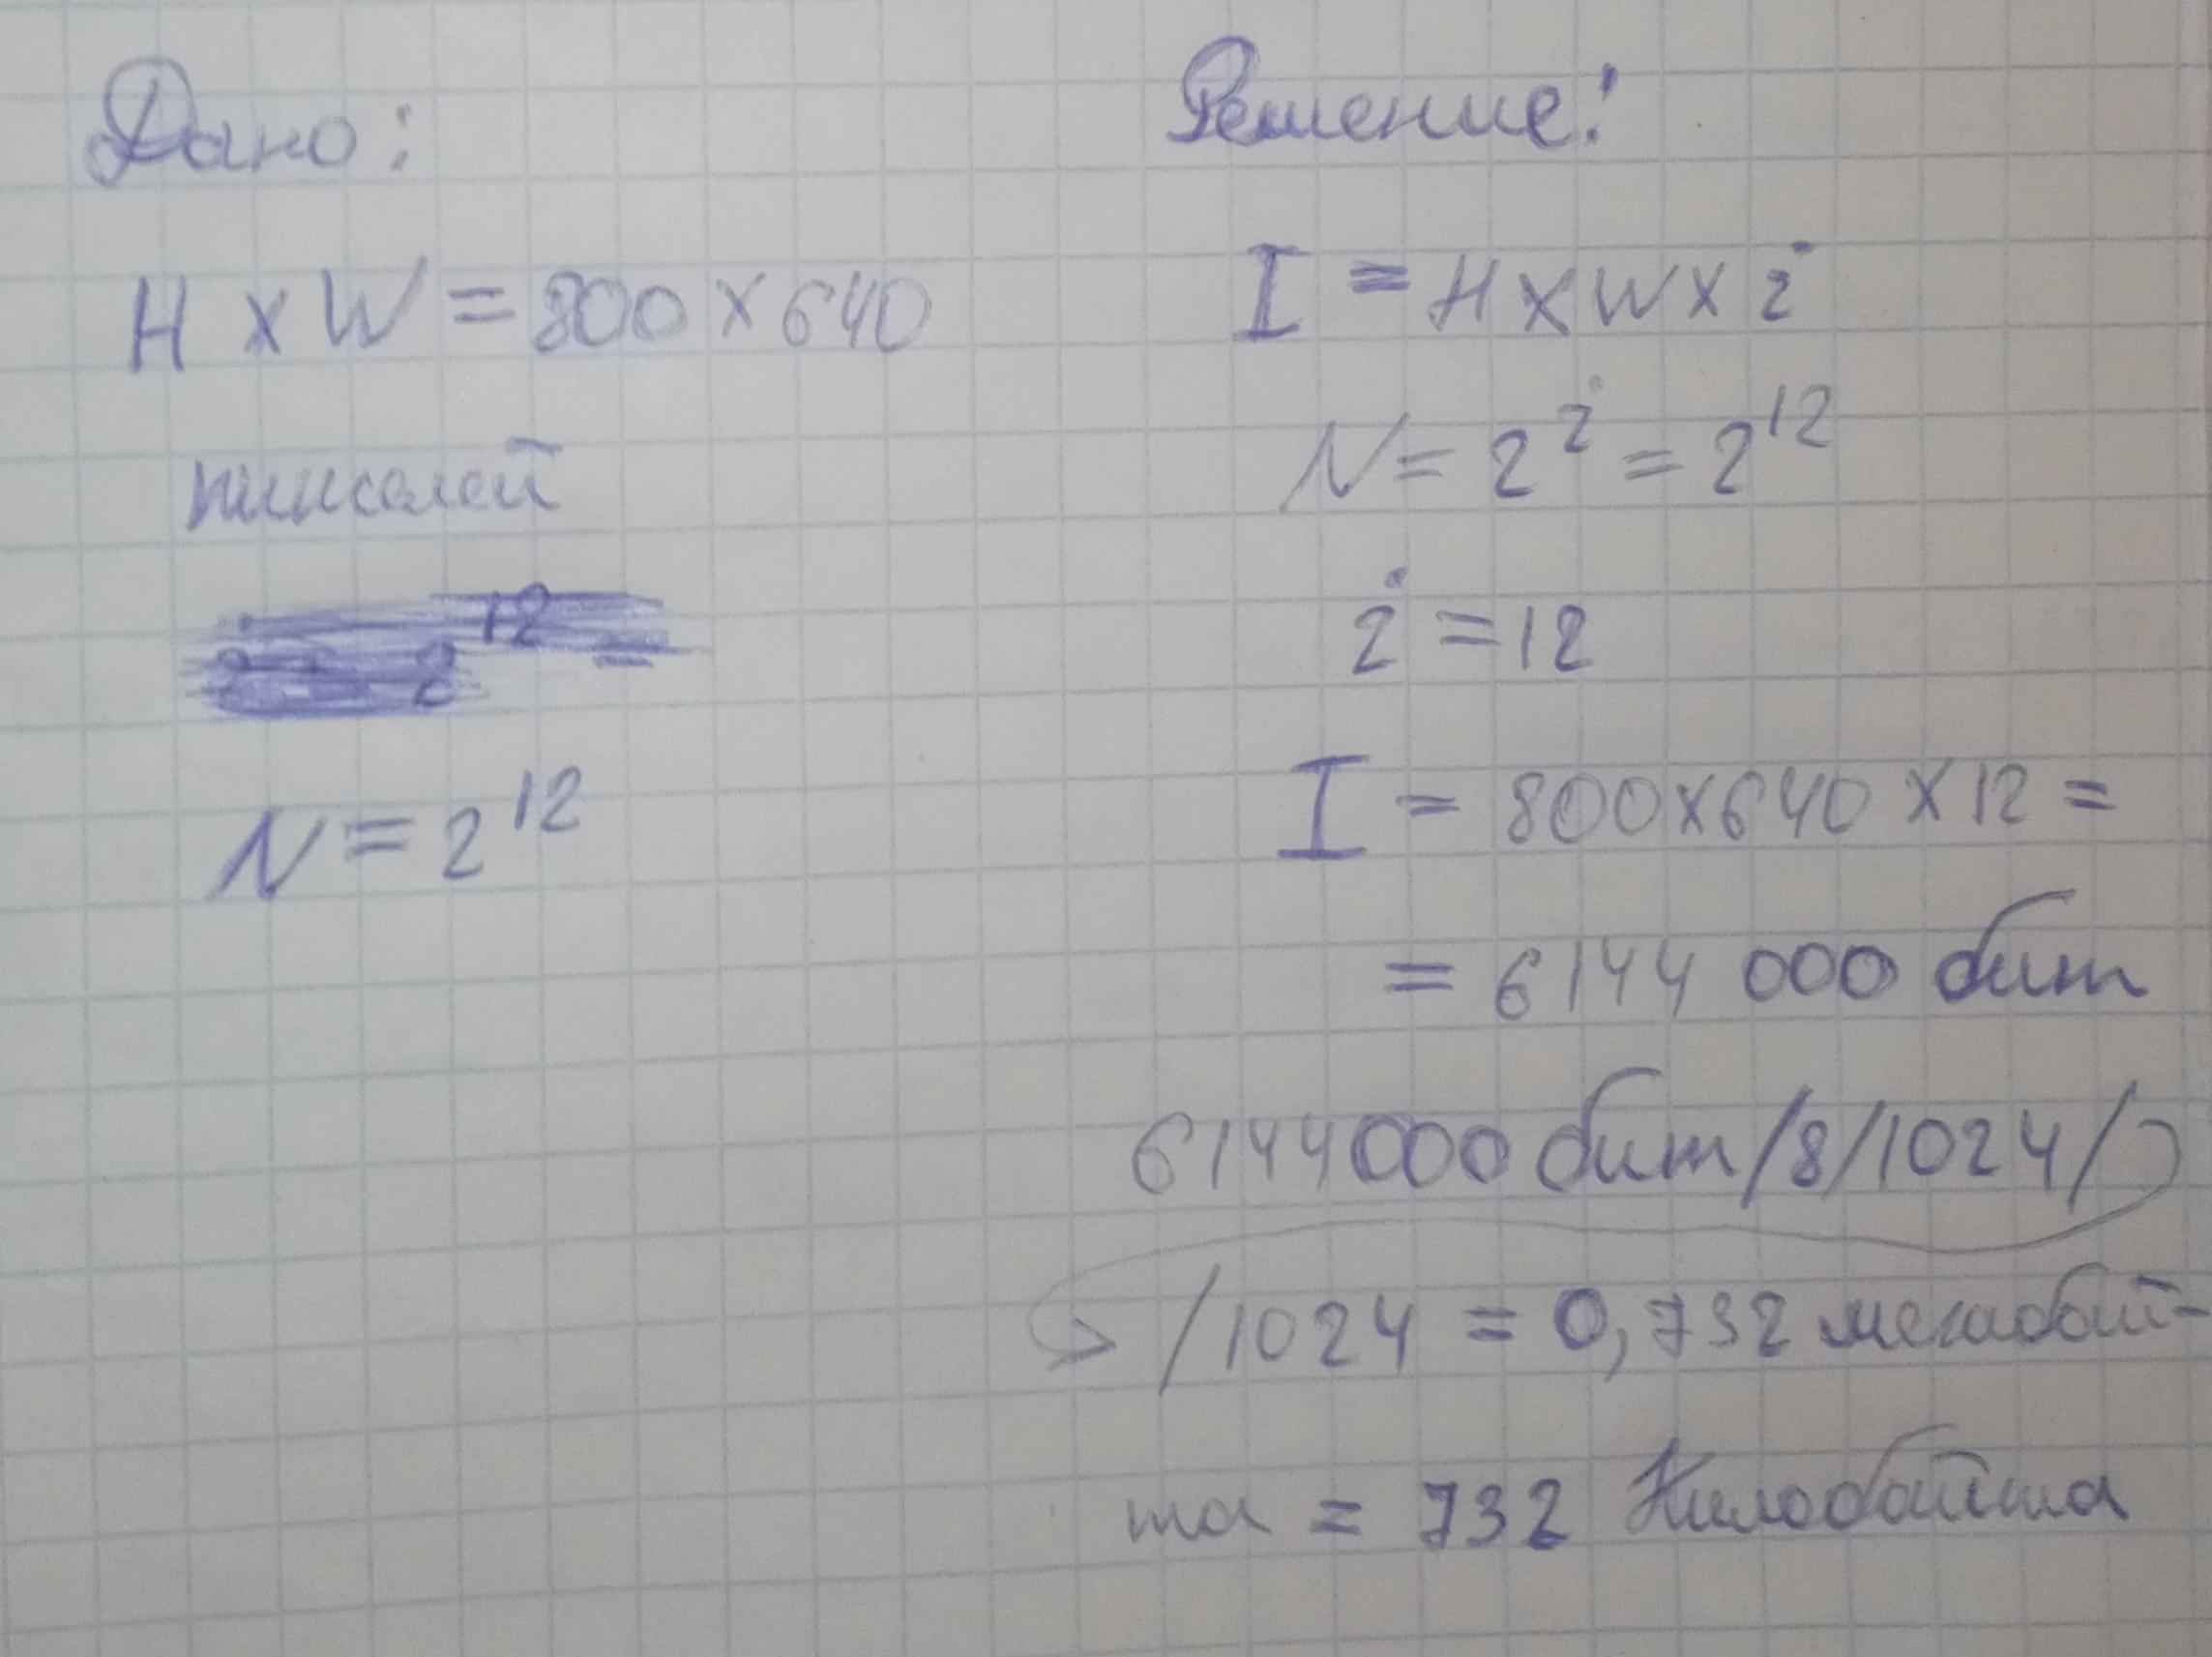 Дано:
H x W = 800 x 640
пикселей
N = 2^12
Решение:
I = H x W x i
N = 2^i = 2^12
i = 12
I = 800 x 640 x 12 =
= 6144 000 бит
6144000 бит/8/1024/
/1024 = 0,732 мегабай-
та = 732 Килобайта